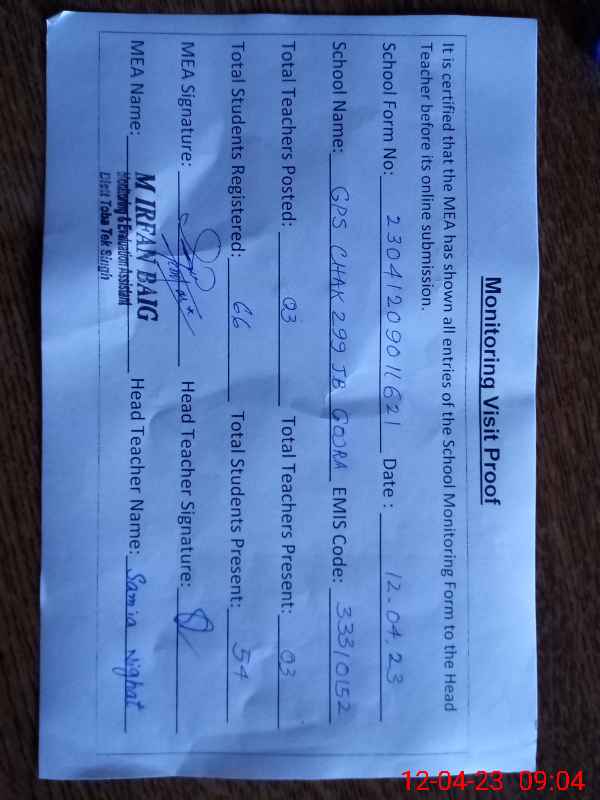 Monitoring Visit Proof
It is certified that the MEA has shown all entries of the School Monitoring Form to the Head
Teacher before its online submission.
School Form No: 2304120901 1621 Date : 12.04.23
School Name: GPS CHAK 299 JB GOJRA EMIS Code: 33310152
Total Teachers Posted: 03 Total Teachers Present: 03
Total Students Registered: 66 Total Students Present: 54
MEA Signature: Head Teacher Signature:
MEA Name: M IRFAN BAIG Head Teacher Name: Samia Nighat
Monitoring & Evaluation Assistant
Distt Toba Tek Singh
12-04-23 09:04